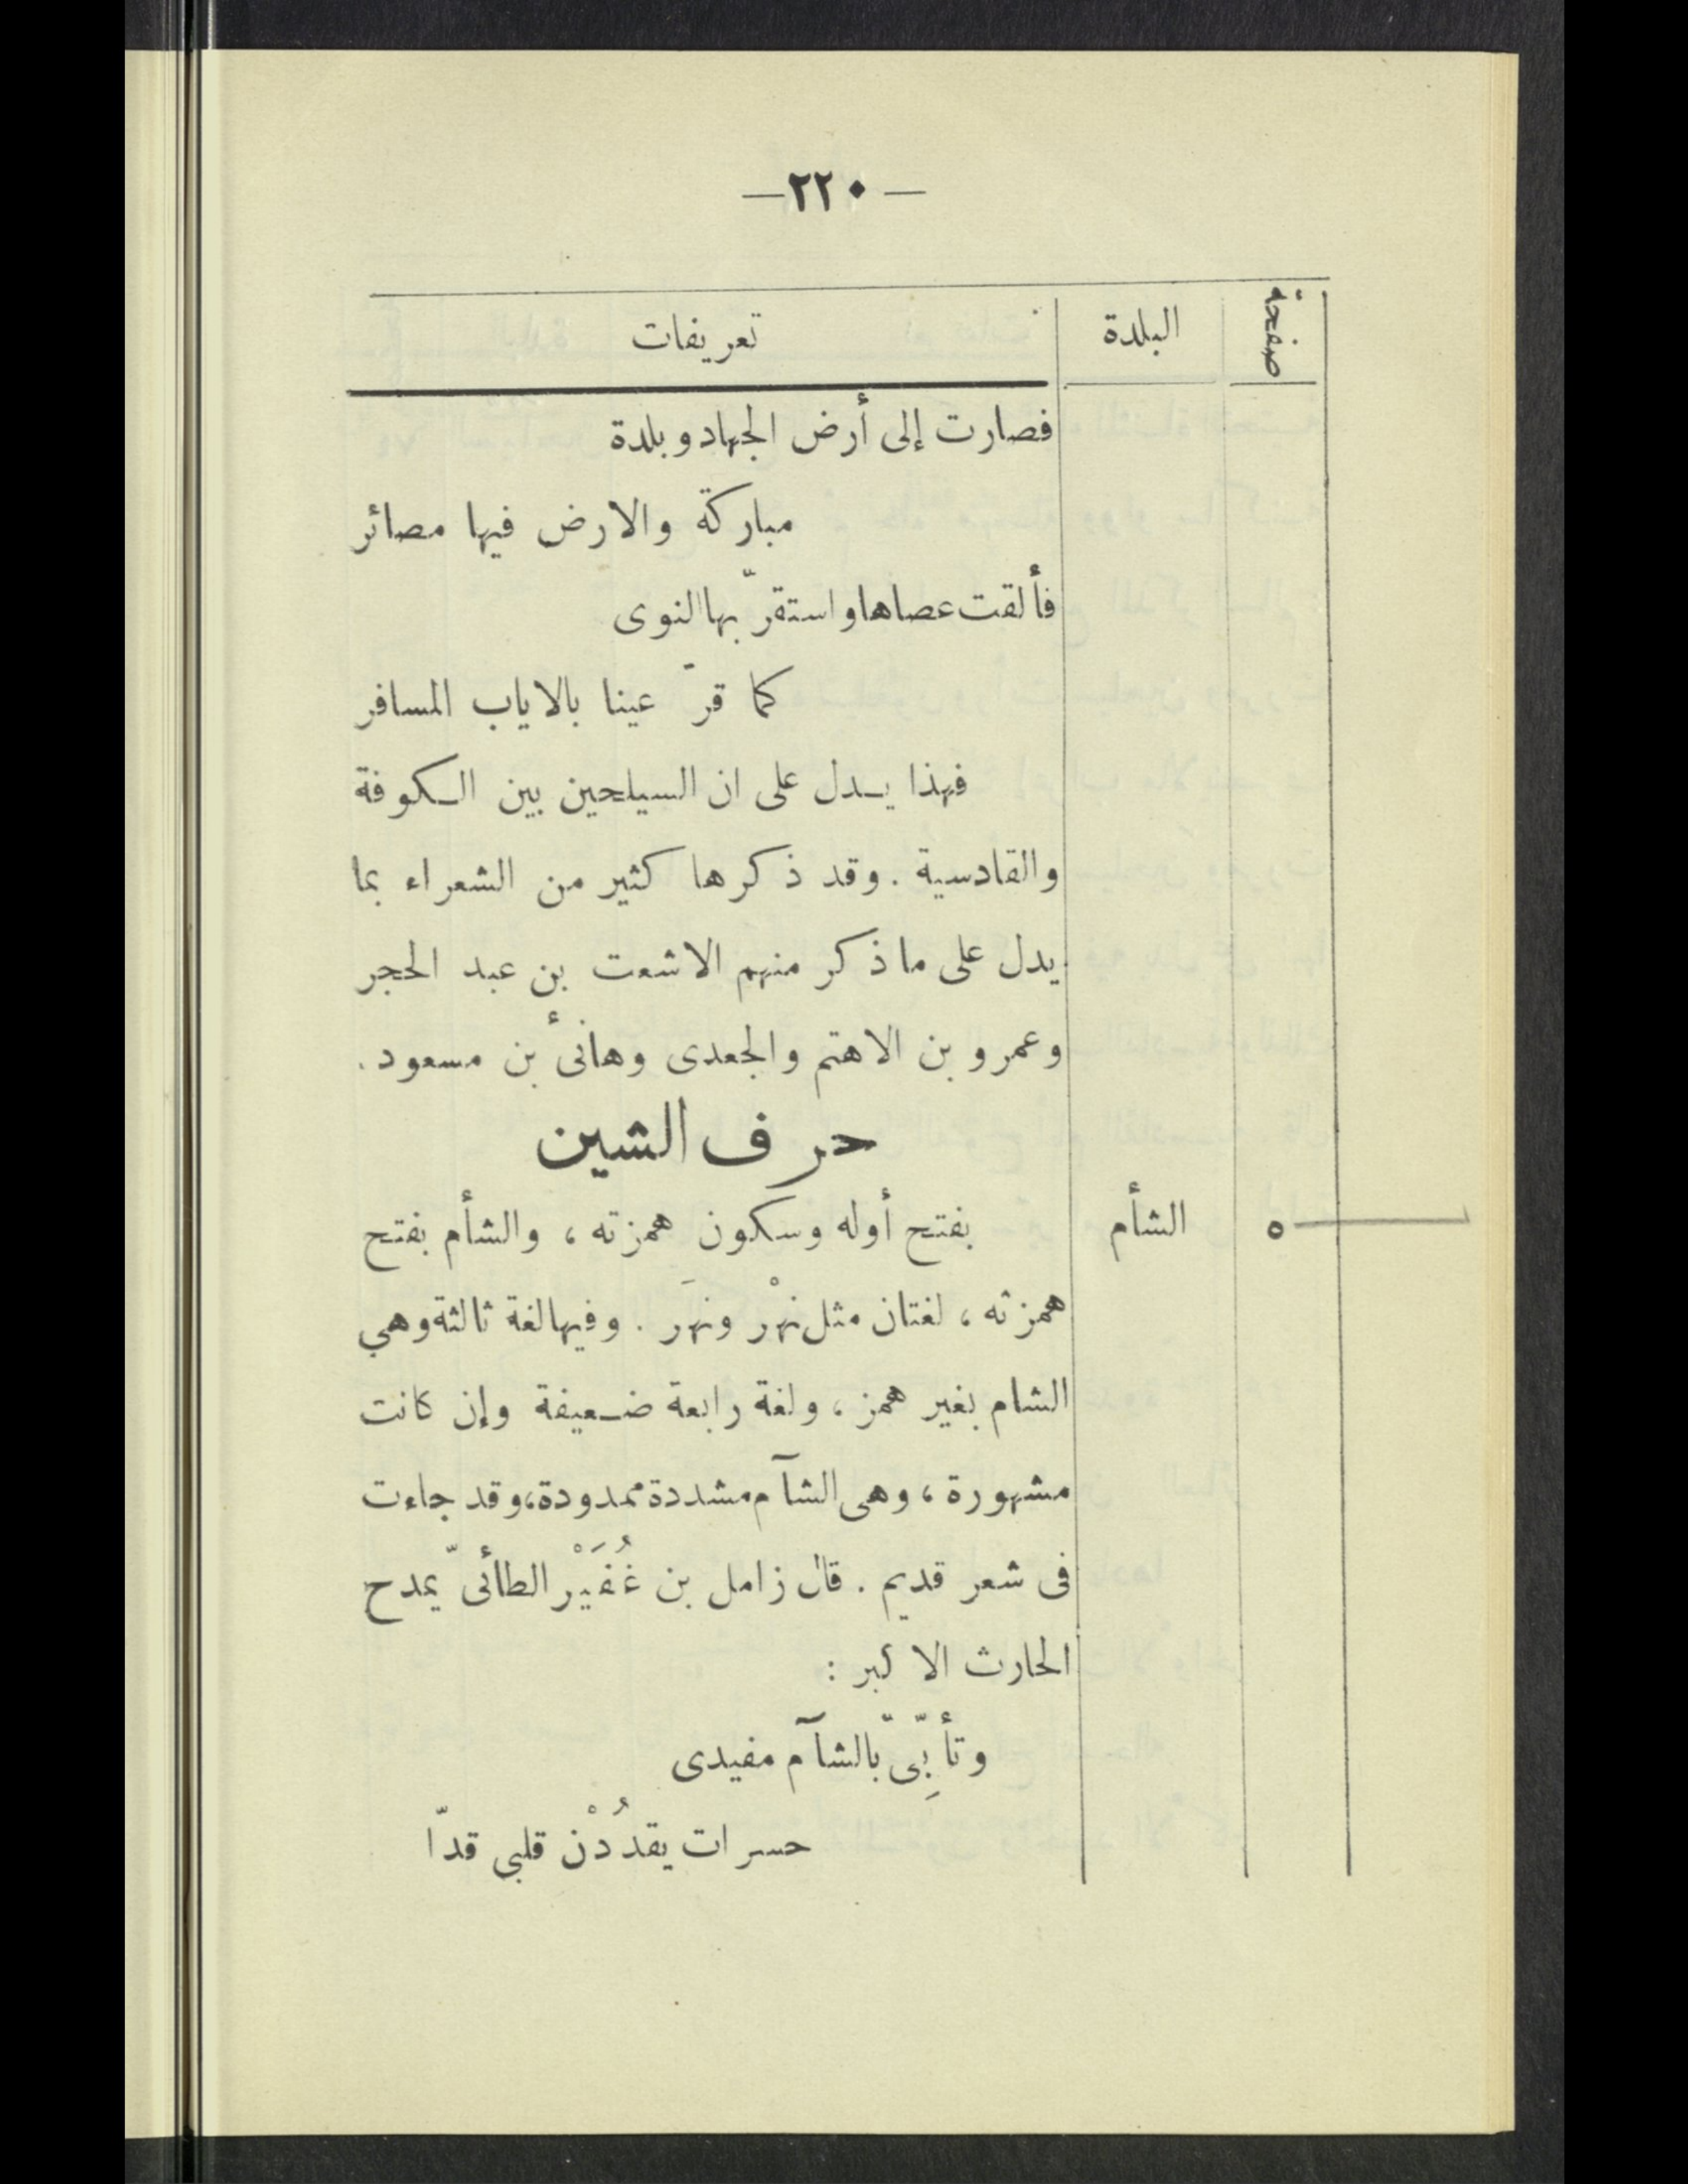 — ٢٢٠ —
صفحة البلدة تعريفات
فصارت إلى أرض الجهاد وبلدة
مباركة والارض فيها مصائر
فألقت عصاها واستقرّ بها النوى
كما قرّ عينا بالاياب المسافر
فهذا يدل على ان السيلحين بين الكوفة
والقادسية . وقد ذكرها كثير من الشعراء بما
يدل على ما ذكر منهم الاشعت بن عبد الحجر
وعمرو بن الاهتم والجعدى وهانئ بن مسعود .
حرف الشين
٥ الشأم بفتح أوله وسكون همزته ، والشأم بفتح
همزته ، لغتان مثل نهْر ونهَر . وفيها لغة ثالثة وهي
الشام بغير همز ، ولغة رابعة ضعيفة وإن كانت
مشهورة ، وهى الشآم مشددة ممدودة ، وقد جاءت
فى شعر قديم . قال زامل بن غُفَيْر الطائىّ يمدح
الحارث الاكبر :
وتأبِّىّ بالشآم مفيدى
حسرات يقدُدْن قلبى قدّا